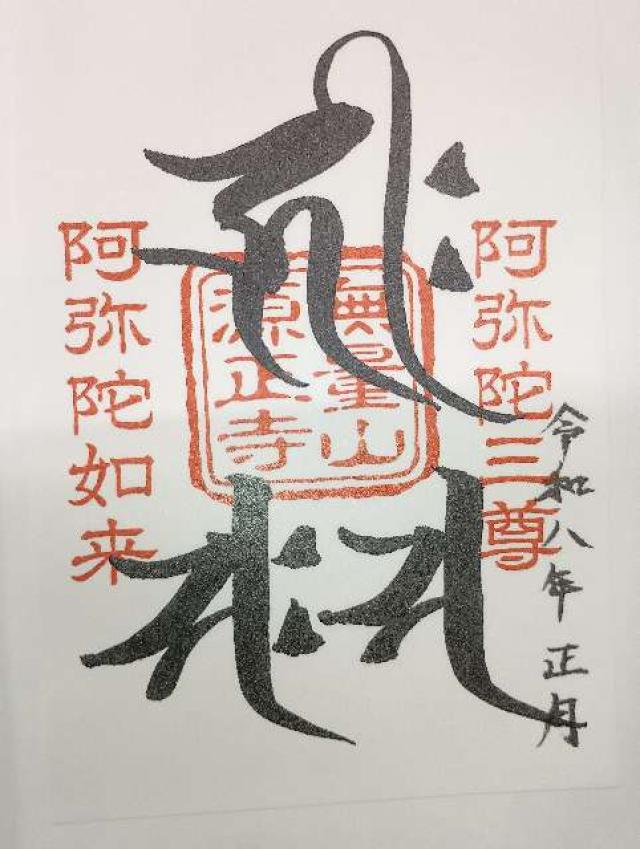 阿弥陀三尊
令和八年正月
𑖮𑖿𑖨𑖱𑖾
𑖭
𑖭𑖾
無量山
源正寺
阿弥陀如来